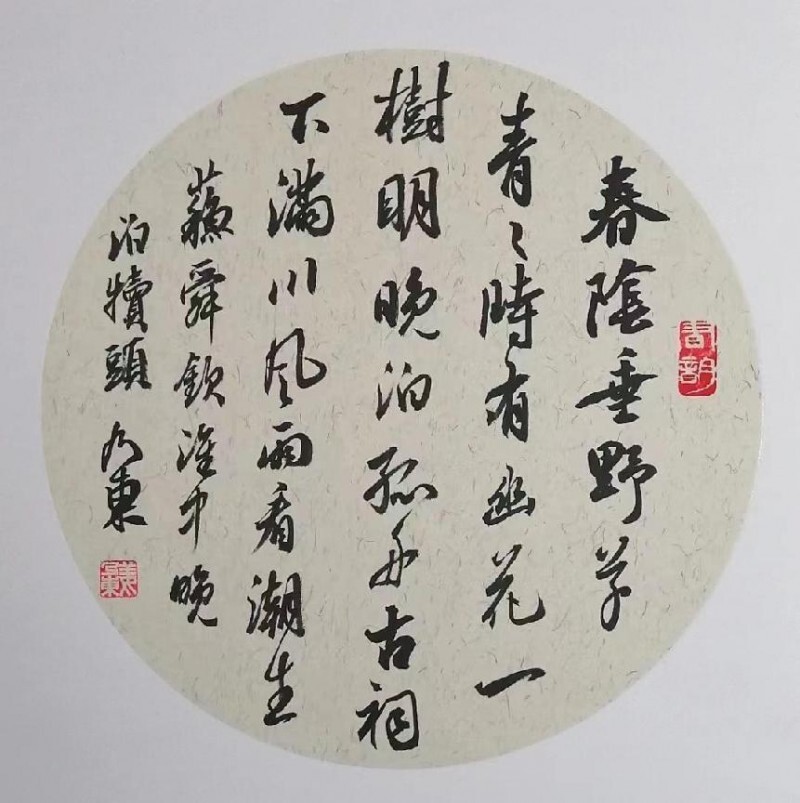 春陰垂野草
青〻時有幽花一
樹明晚泊孤舟古祠
下滿川风雨看潮生
蘇舜欽淮中晚
泊犢頭 乃東